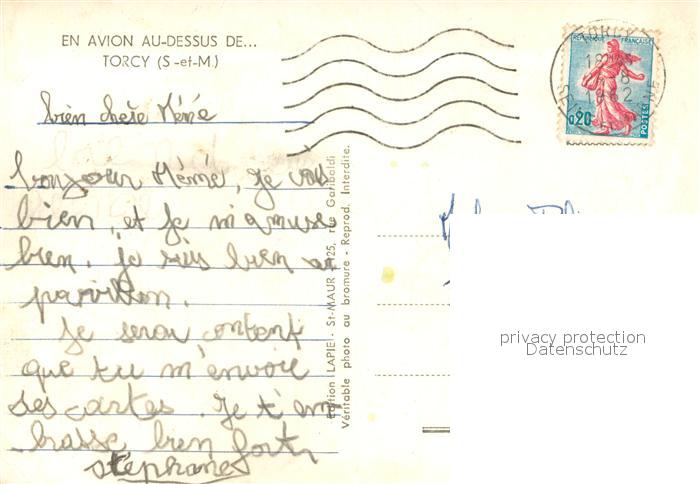 EN AVION AU-DESSUS DE...
TORCY (S-et-M.)
bien chere Mémé
bonjour Mémé, je vais
bien, et je m'amuse
bien. je suis bien au
pavillon.
Je serai content
que tu m'envoie
des cartes. Je t'em
brasse bien fort,
stéphane
Edition LAPIE. St-MAUR 125, rue Garibaldi
Véritable photo au bromure - Reprod. Interdite.
REPUBLIQUE FRANÇAISE
0,20
POSTES
TORCY
1962
privacy protection
Datenschutz